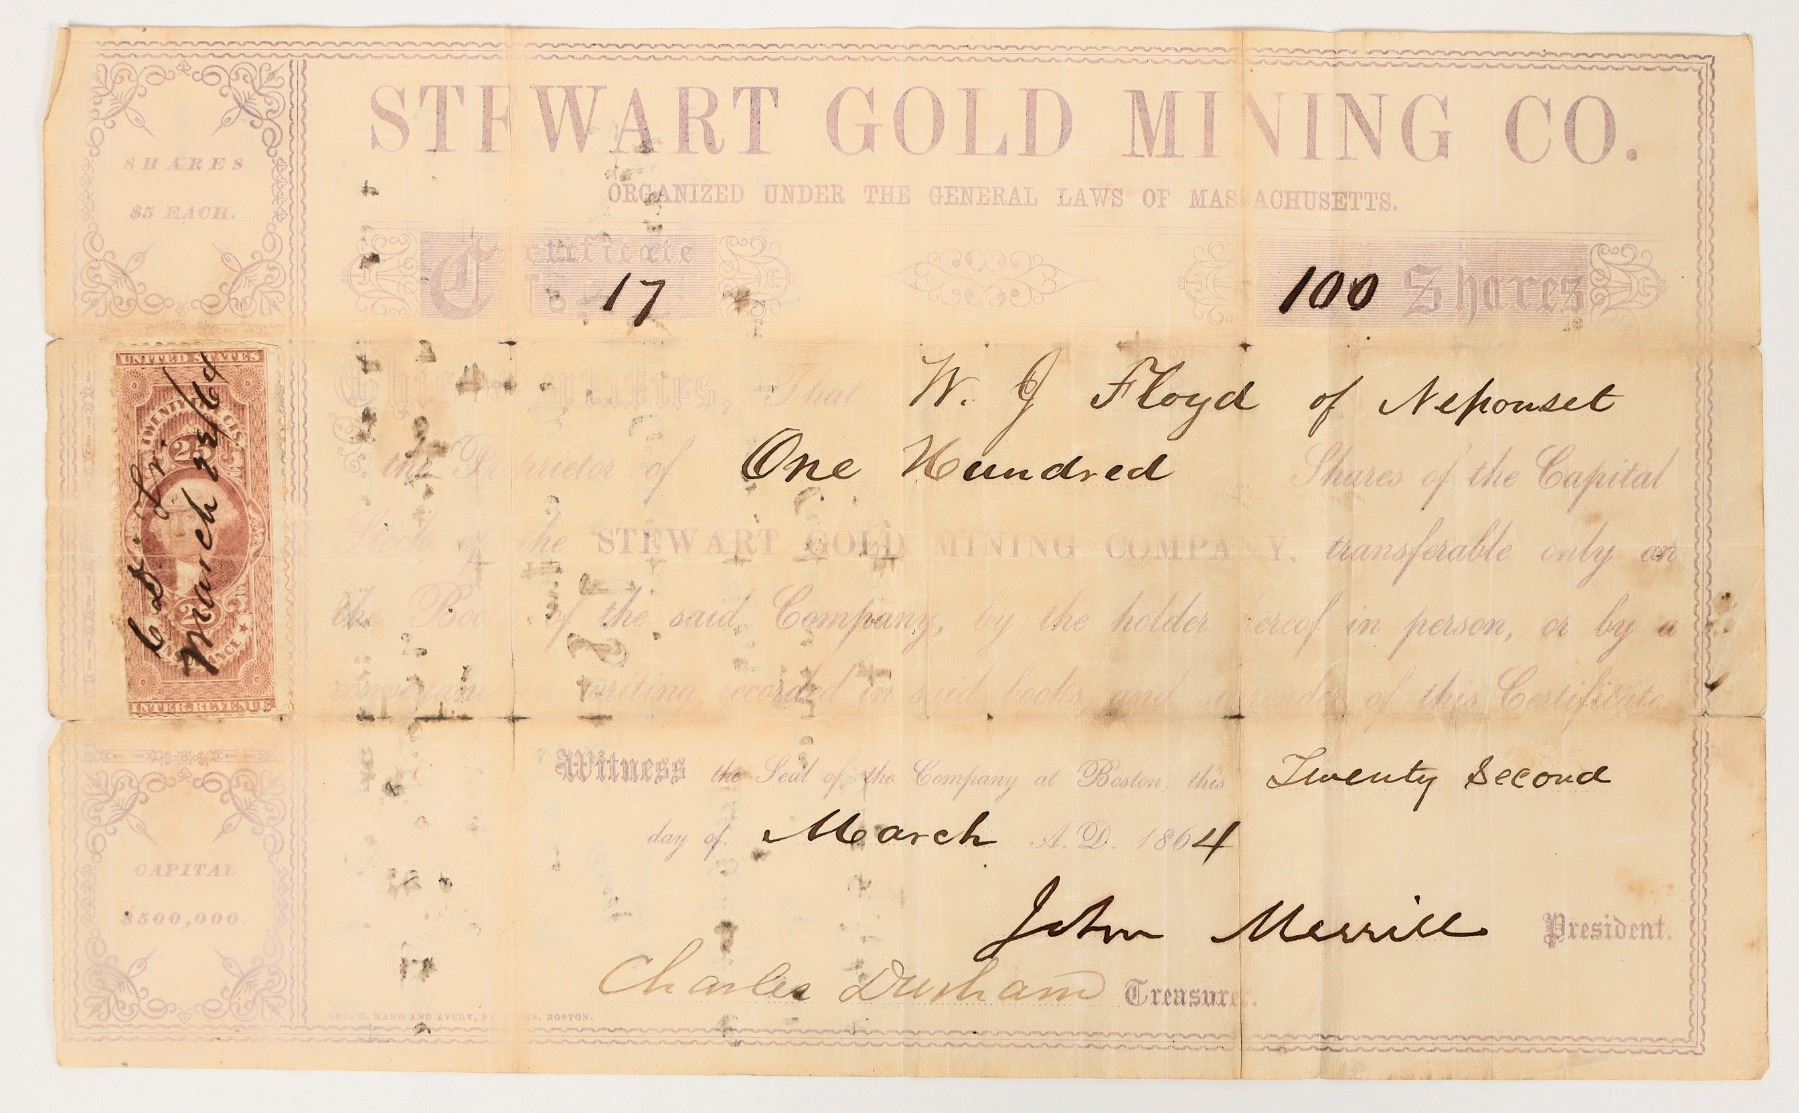 STEWART GOLD MINING CO.
ORGANIZED UNDER THE GENERAL LAWS OF MASSACHUSETTS.
SHARES
$5 EACH.
Certificate
No. 17
100 Shares
This Certifies, That W. J Floyd of Neponset
the Proprietor of One Hundred Shares of the Capital
Stock of the STEWART GOLD MINING COMPANY, transferable only on
the Books of the said Company, by the holder hereof in person, or by a
conveyance in writing recorded in said books, and surrender of this Certificate.
Witness the Seal of the Company at Boston, this Twenty Second
day of March A.D. 1864
John Merrill President.
Charles Durham Treasurer.
GEO. C. RAND AND AVERY, PRINTERS, BOSTON.
UNITED STATES
TWENTY FIVE CENTS
25
25
INSURANCE
INTER. REVENUE
March 22/64
CAPITAL
$500,000.